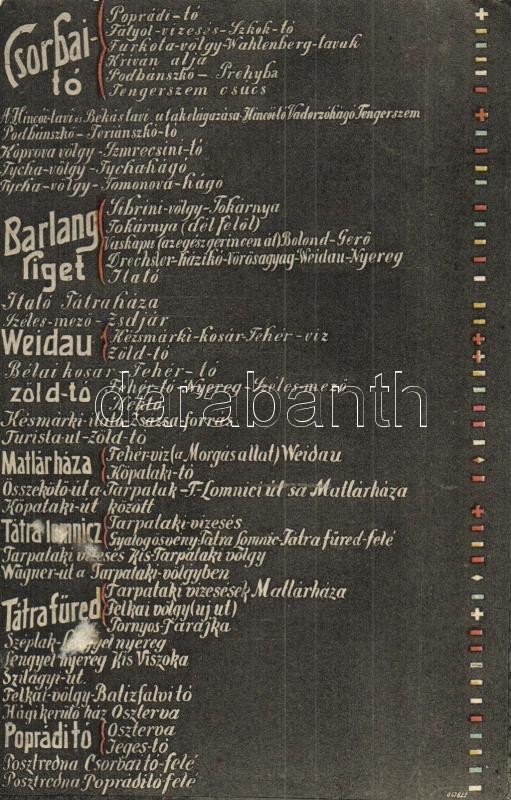 Csorbai-tó
Poprádi-tó
Fátyol-vizesés-Szkok-tó
Furkota-völgy-Wahlenberg-tavuk
Kriván alja
Podbánszkó-Prehyba
Tengerszem csúcs
A Hincói-tavi és Békástavi utak elágazása-Hincói tó Vadorzóhágó Tengerszem
Podbánszkó-Teriánszkó-tó
Kóprova völgy-Szmrecsini-tó
Tycha-völgy-Tychahágó
Tycha-völgy-Tomonova-hágo
Barlang liget
Sibrini-völgy-Tokárnya
Tokárnya (dél felöl)
Vaskapu (az egész gerincen át) Bolond-Gerö
Drechsler-házikó-vörösagyag-Weidau-Nyereg
Itató
Itató Tátraháza
Szeles-mezö-Zsdjár
Weidau
Késmárki-kosár-Fehér-viz
Zöld-tó
Bélai kosár-Fehér-tó
zöld-tó
Fehér-tó-Nyereg-Szeles-mezö
Késmárki-itató Zsázsa-forrás
Turista-ut-zöld-tó
Matlárháza
Fehérviz (a Morgás allat) Weidau
Köpataki-tó
Összekötö-út a Tarpatak-T-Lomnici út sa Matlárháza
Köpataki-ut között
Tátra lomnicz
Tarpataki-vizesés
Gyalogösvény-Tátra lomnic-Tátra füred-felé
Tarpataki vizesés Kis-Tarpataki völgy
Wagner-ut a Tarpataki-völgyben
Tátrafüred
Tarpataki vizesések Matlárháza
Felkai völgy (uj ut)
Tornyos-Tarajka
Széplak-Lengyel nyereg
Lengyel nyereg Kis Viszoka
Szilágyi-ut.
Felkai-völgy-Batizfalvi tó
Hági kerülö ház Oszterva
Poprádi tó
Oszterva
Jeges-tó
Posztredna Csorbai tó-felé
Posztredna Poprádi tó-felé
darabanth